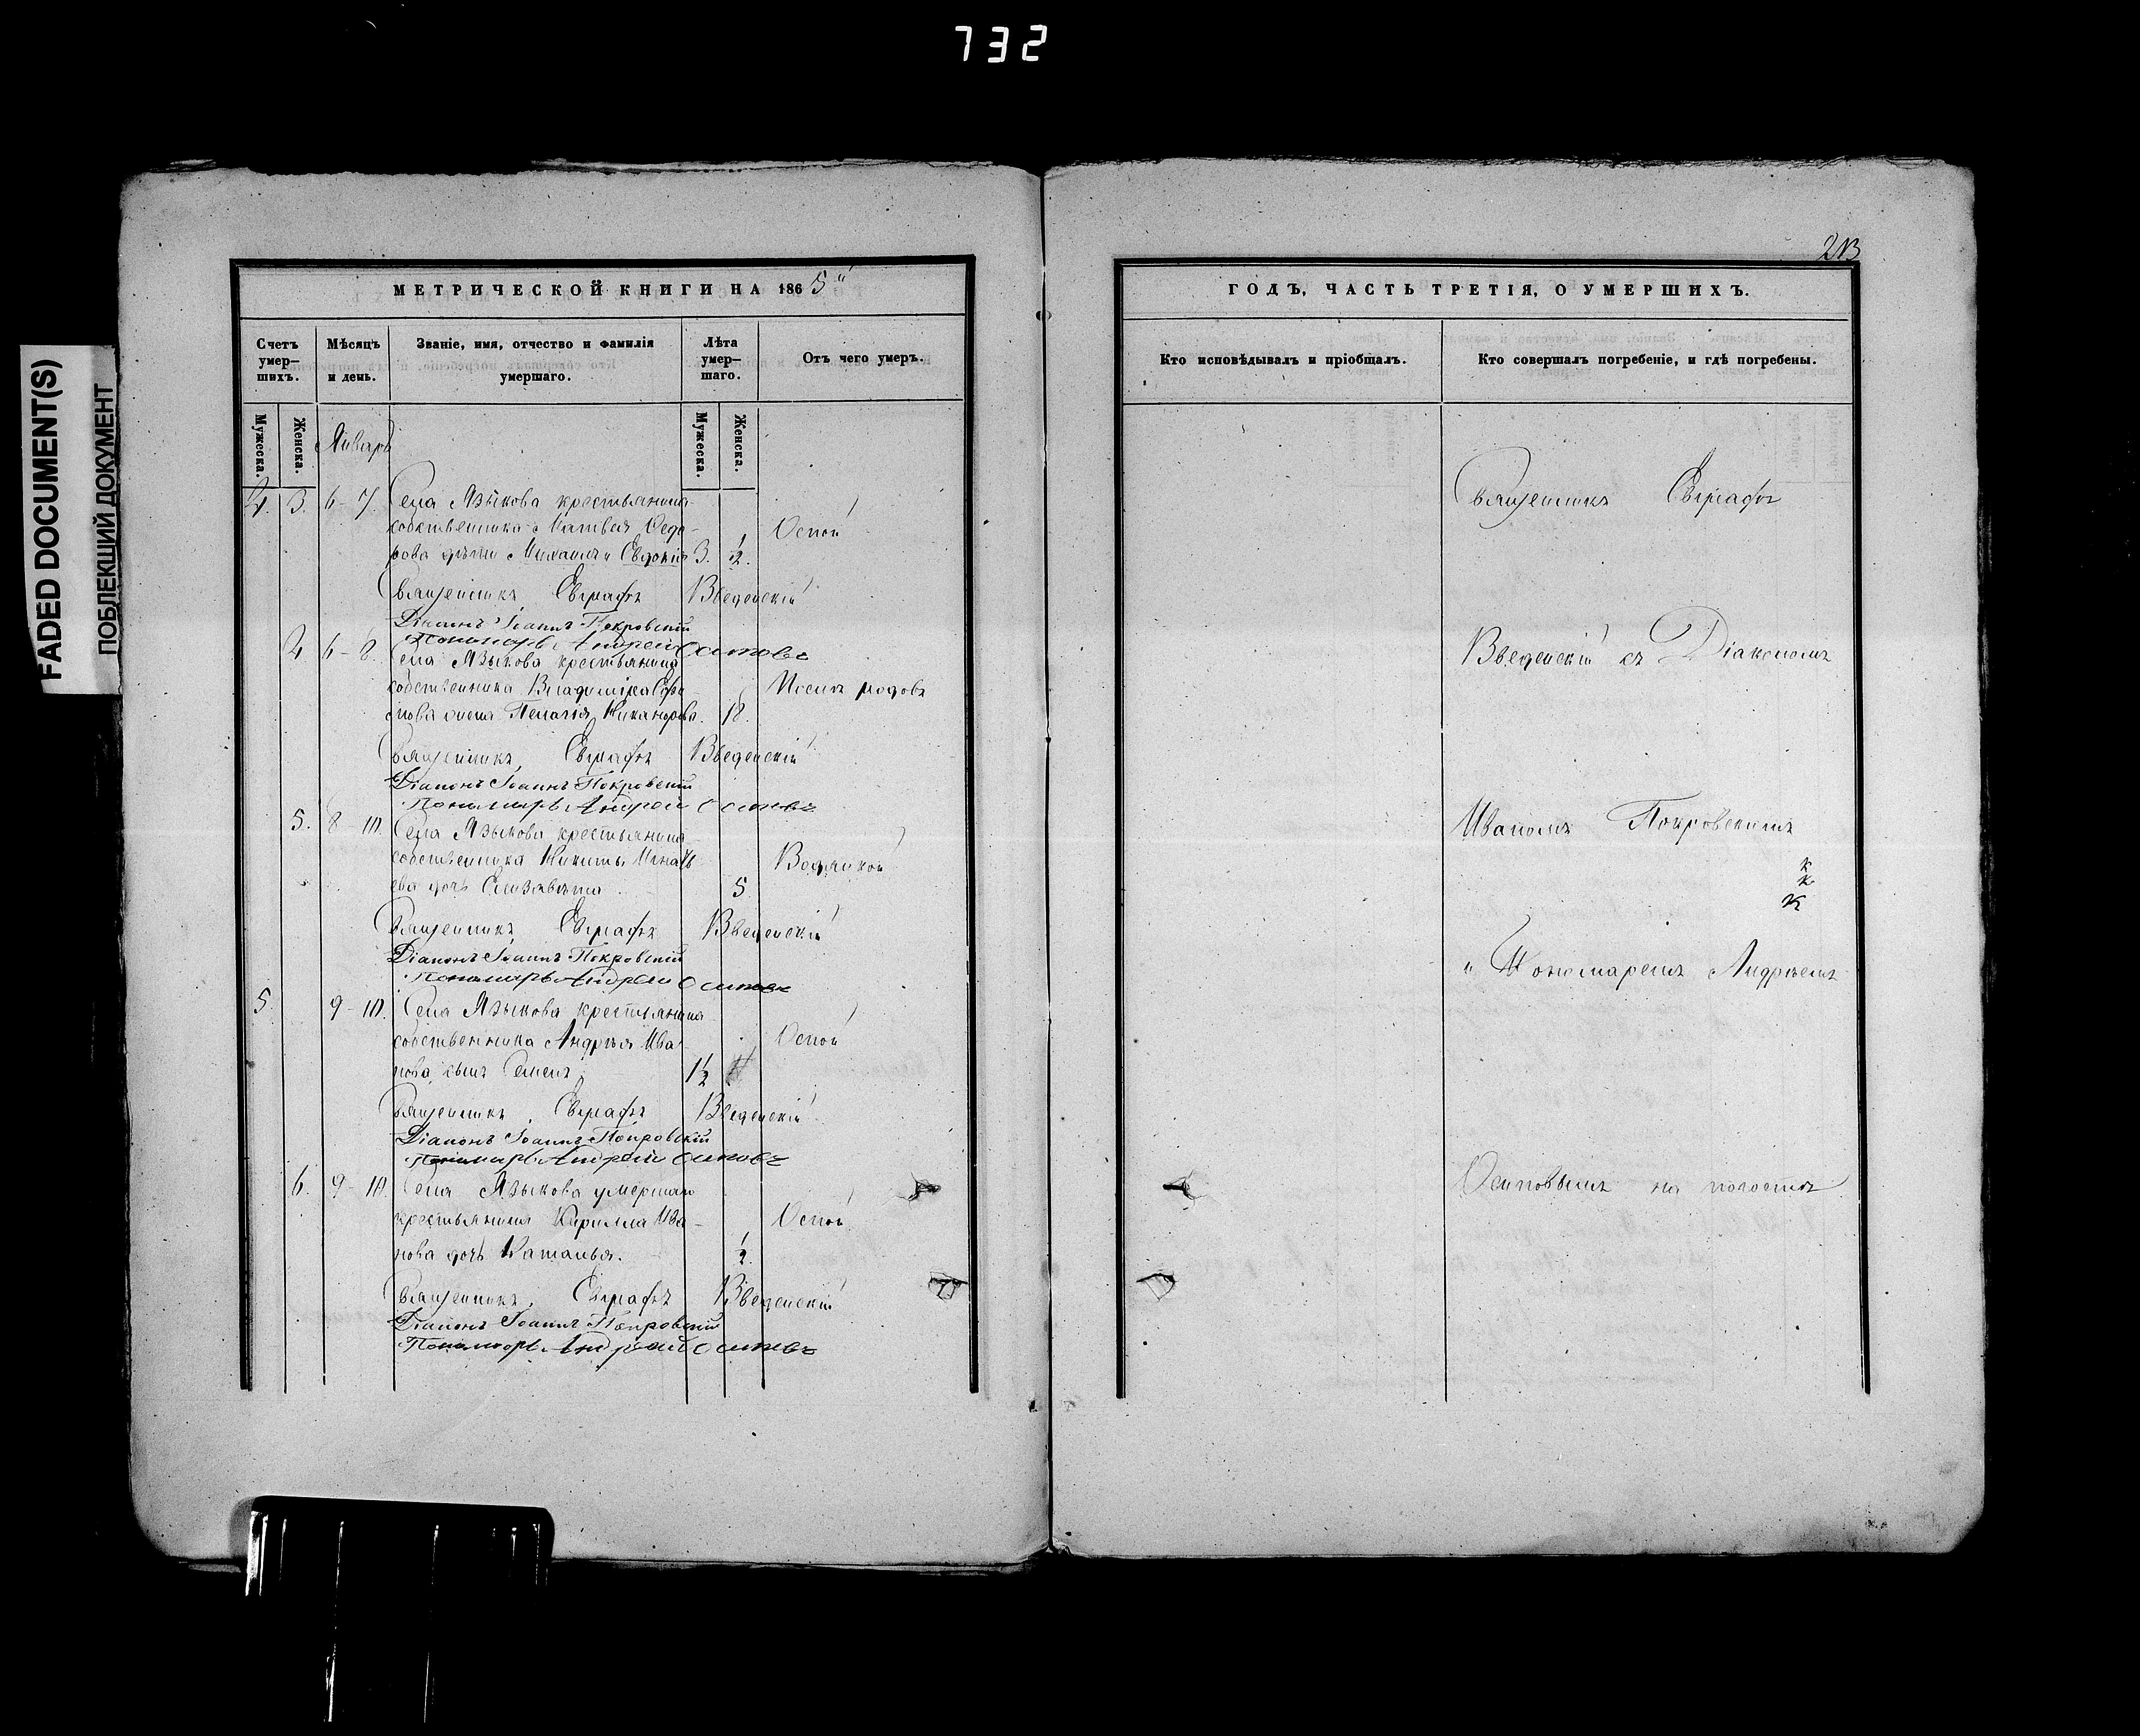 732
FADED DOCUMENT(S)
ПОБЛЕКШИЙ ДОКУМЕНТ
МЕТРИЧЕСКОЙ КНИГИ НА 1865й
Счетъ умер-
шихъ.
Мѣсяцъ
и день.
Званіе, имя, отчество и фамилія
умершаго.
Лѣта
умер-
шаго.
Отъ чего умеръ.
Мужеска.
Женска.
Мужеска.
Женска.
Январь
4. 3. 6-7. Села Языкова крестьянина
собственника Матвея Ѳедо-
рова дѣти Михаилъ и Евдокія 3. 1/2. Оспой
Священникъ Евграфъ Введенскій
Діаконъ Іоаннъ Покровскій
Пономарь Андрей Осиповъ
4 6-8. Села Языкова крестьянина
собственника
нова жена Пелагія Никанорова. 18. Послѣ родовъ
Священникъ Евграфъ Введенскій
Діаконъ Іоаннъ Покровскій
Пономарь Андрей Осиповъ
5. 8-10. Села Языкова крестьянина
собственника Никиты Игнать
ева дочь Елизавета 5 Водяной
Священникъ Евграфъ Введенскій
Діаконъ Іоаннъ Покровскій
Пономарь Андрей Осиповъ
5. 9-10. Села Языкова крестьянина
собственника Андрѣя Ива-
нова сынъ Семенъ. 1 1/2 Оспой
Священникъ Евграфъ Введенскій
Діаконъ Іоаннъ Покровскій
Пономарь Андрей Осиповъ
6. 9-10. Села Языкова умершаго
крестьянина Кирилла Ива-
нова дочь Наталья. 1/2. Оспой
Священникъ Евграфъ Введенскій
Діаконъ Іоаннъ Покровскій
Пономарь Андрей Осиповъ
213
ГОДЪ, ЧАСТЬ ТРЕТІЯ, О УМЕРШИХЪ.
Кто исповѣдывалъ и пріобщалъ.
Кто совершалъ погребеніе, и гдѣ погребены.
Священникъ Евграфъ
Введенскій съ Діакономъ
Иваномъ Покровскимъ
и Пономаремъ Андрѣемъ
Осиповымъ на погостѣ